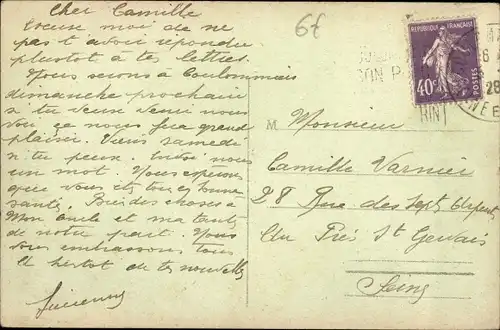 Cher Camille
Excuse moi de ne
pas t'avoir répondu
plustot à tes lettres.
Nous serons à Coulommiers
dimanche prochain
si tu veux venir nous
voir ça nous fera grand
plaisir. Viens samedi
si tu peux. Ecris nous
un mot. Nous espérons
que vous êtes tous en bonne
santé. Bien des choses à
Mon oncle et ma tante
de notre part. Nous
vous embrassons tous
et de tes nouvelles
6f
REPUBLIQUE FRANÇAISE
40c
POSTES
28
M Monsieur
Camille Varnier
28 Rue des Sept Arpents
Au Prés St Gervais
Seine